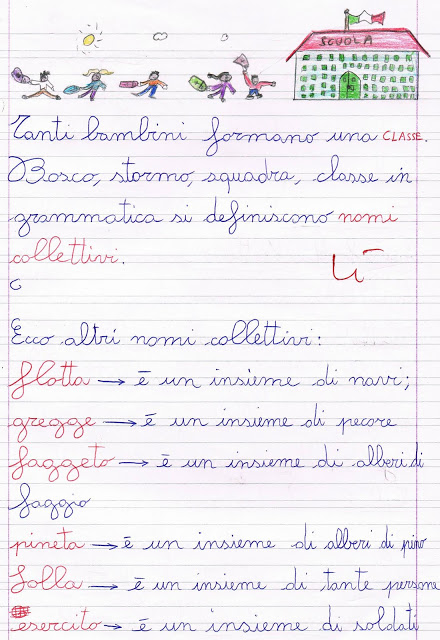 SCUOLA
Tanti bambini formano una CLASSE.
Bosco, stormo, squadra, classe in
grammatica si definiscono nomi
collettivi.
C
Ecco altri nomi collettivi:
flotta → è un insieme di navi;
gregge → è un insieme di pecore
faggeto → è un insieme di alberi di
faggio
pineta → è un insieme di alberi di pino
folla → è un insieme di tante persone
esercito → è un insieme di soldati